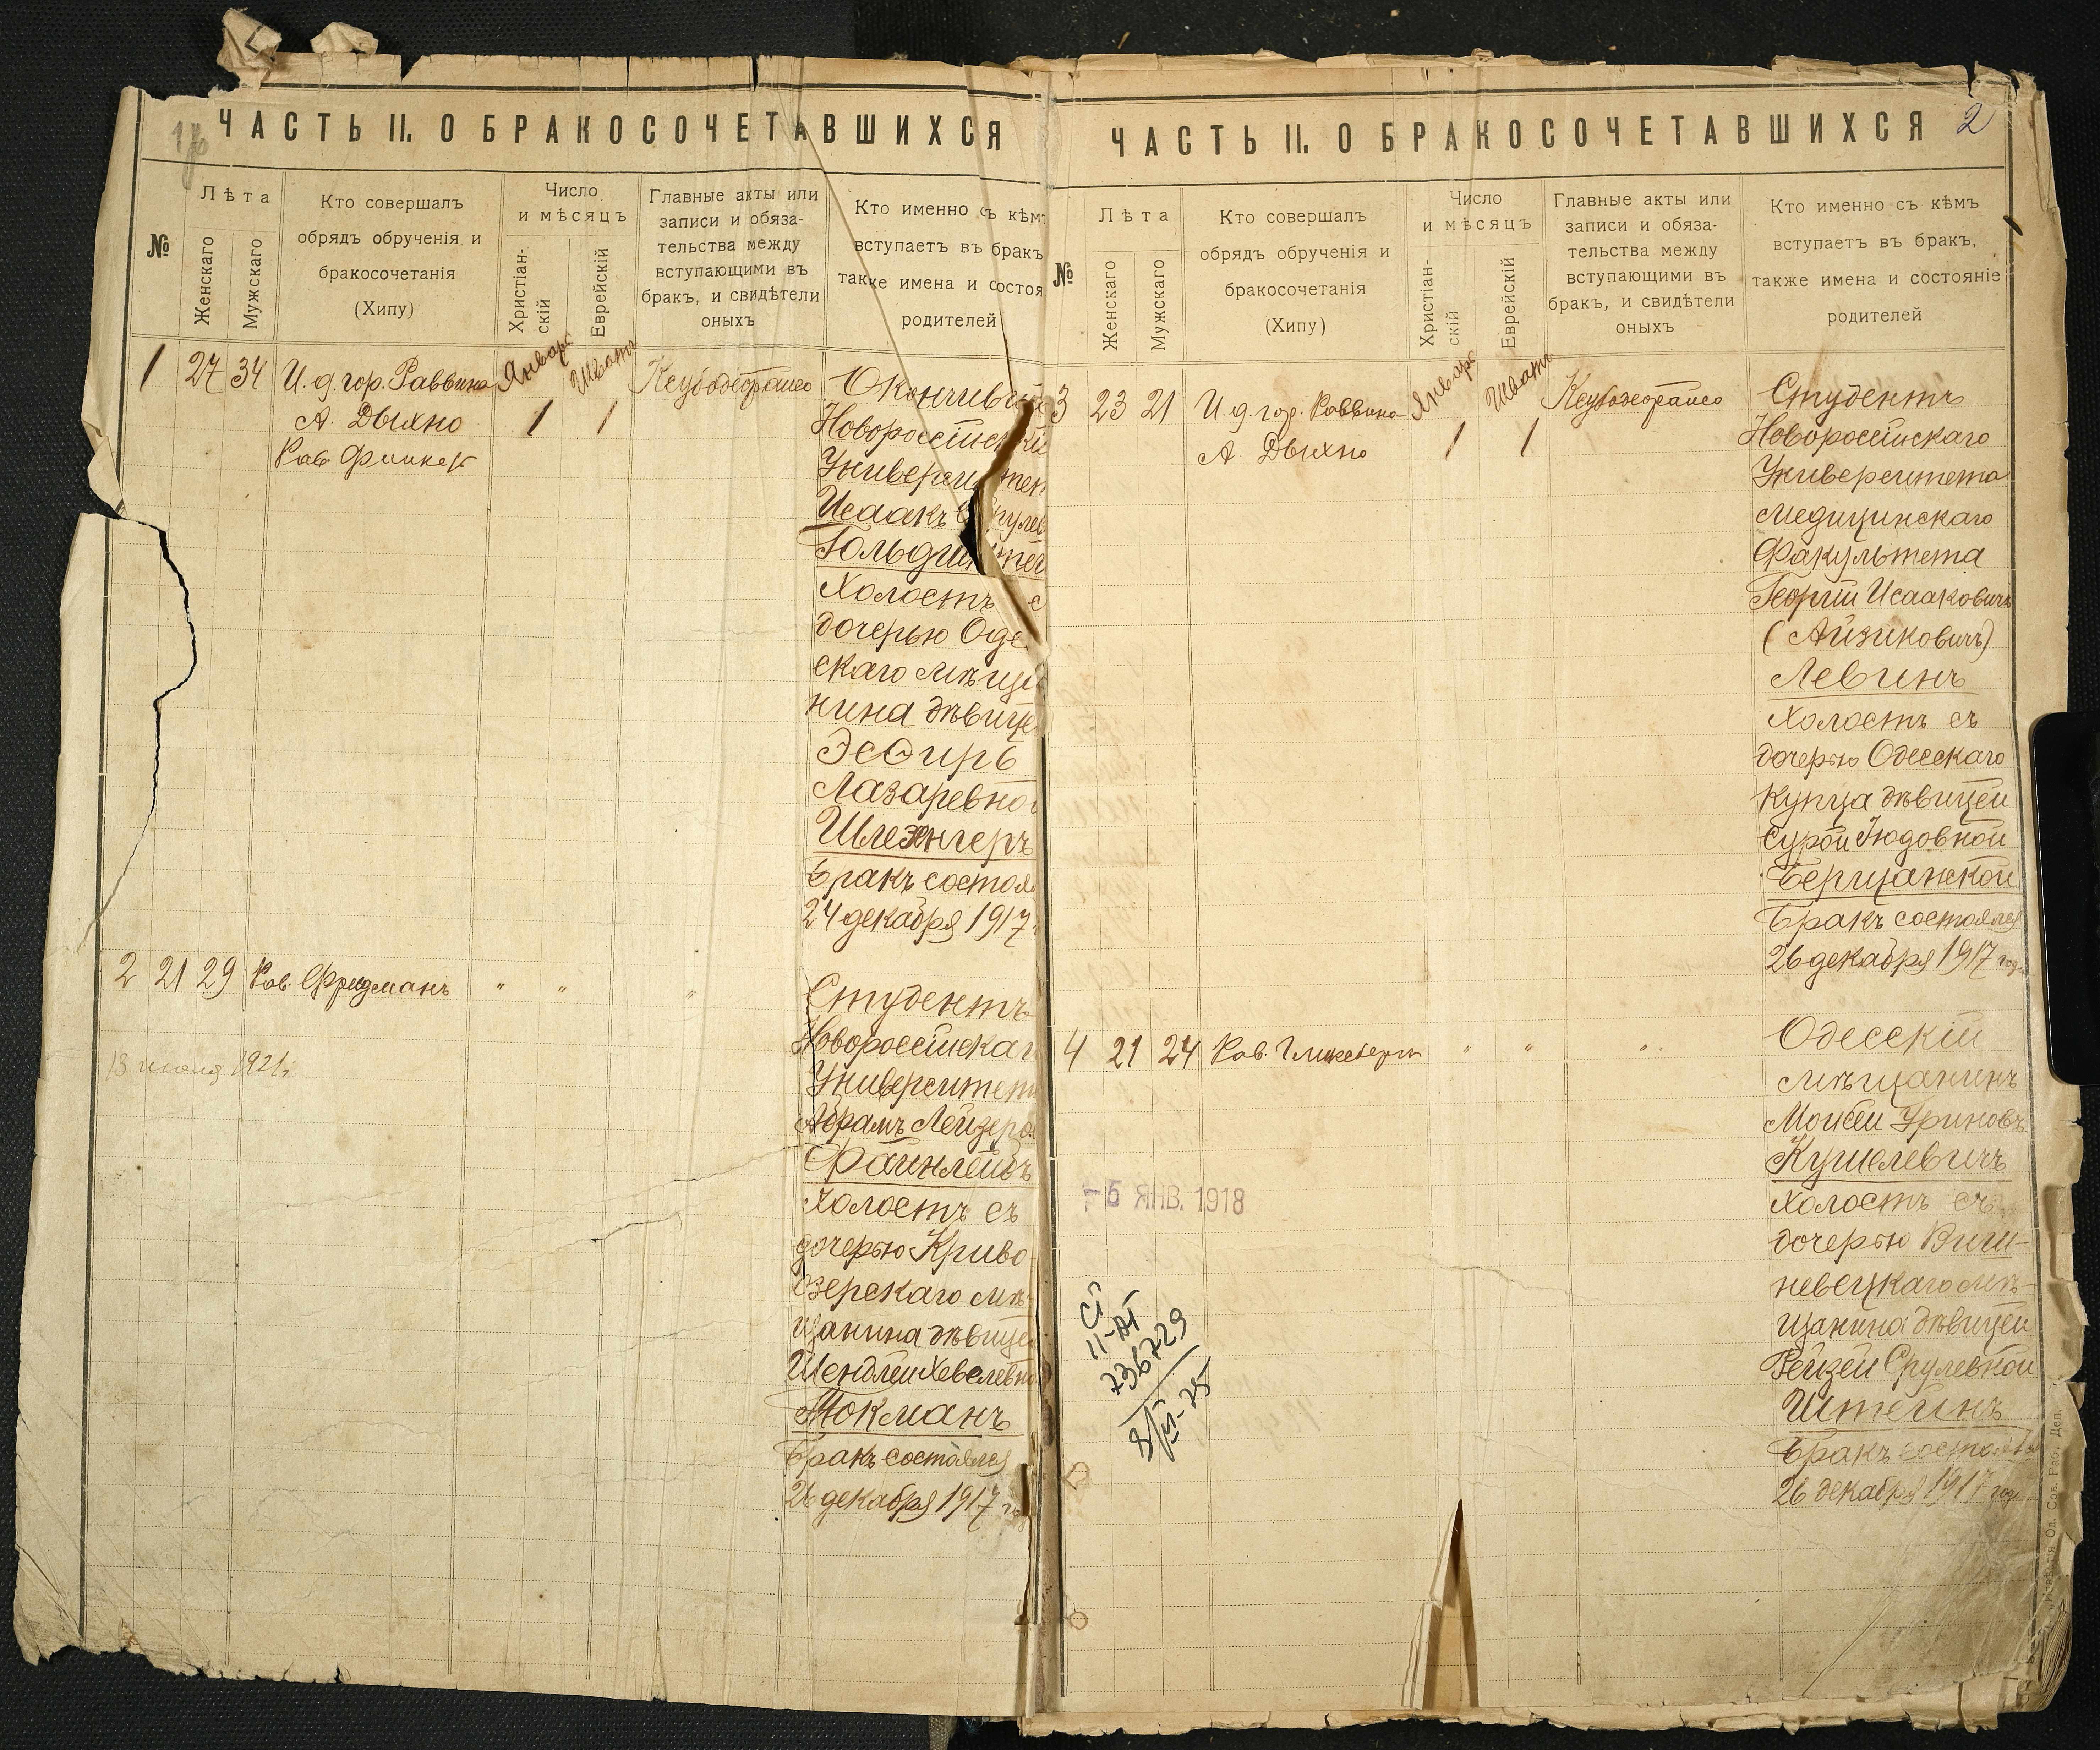 ЧАСТЬ II. О БРАКОСОЧЕТАВШИХСЯ
№
Лѣта
Женскаго
Мужскаго
Кто совершалъ
обрядъ обрученія и
бракосочетанія
(Хипу)
Число
и мѣсяцъ
Христіан-
скій
Еврейскій
Главные акты или
записи и обяза-
тельства между
вступающими въ
бракъ, и свидѣтели
оныхъ
Кто именно съ кѣмъ
вступаетъ въ бракъ
также имена и состоя
родителей
1 27 34
И. д. гор. Раввина
А. Дыхно
Рав.
Январь
1
Шватъ
1
Окончивш
Новороссійскі
Университет
Исаакъ
Гольд
Холостъ с
дочерью Оде
скаго мѣща
нина дѣвице
Эсѳирь
Лазаревно
Шлезингеръ
Бракъ состоя
24 декабря 1917
2 21 29
Рав. Фридманъ
" " "
13 1921 г.
Студентъ
Новороссійскаг
Университет
Абрамъ Лейзеро
Файнлейбъ
Холостъ съ
дочерью Криво
озерскаго мѣ-
щанина дѣвице
Шендлей Хевелевно
Токманъ
Бракъ состоялся
26 декабря 1917 год
ЧАСТЬ II. О БРАКОСОЧЕТАВШИХСЯ
2
№
Лѣта
Женскаго
Мужскаго
Кто совершалъ
обрядъ обрученія и
бракосочетанія
(Хипу)
Число
и мѣсяцъ
Христіан-
скій
Еврейскій
Главные акты или
записи и обяза-
тельства между
вступающими въ
бракъ, и свидѣтели
оныхъ
Кто именно съ кѣмъ
вступаетъ въ бракъ,
также имена и состояніе
родителей
3 23 21
И. д. гор. Раввина
А. Дыхно
Январь
1
Шватъ
1
Студентъ
Новороссійскаго
Университета
Медицинскаго
Факультета
Георгій Исааковичъ
(Айзиковичъ)
Левинъ
Холостъ съ
дочерью Одесскаго
Купца дѣвицей
Сурой Іюдовной
Берщанской
Бракъ состоялся
26 декабря 1917 года
4 21 24
Рав. Гликсбергъ
" " "
Одесскій
мѣщанинъ
Мойсей Уриновъ
Кушелевичъ
Холостъ съ
дочерью Виш-
невецкаго мѣ-
щанина дѣвицей
Рейзей Срулевной
Штейнъ
Бракъ состоялся
26 декабря 1917 год
-5 ЯНВ. 1918
736729
Од. Сов. Раб. Деп.